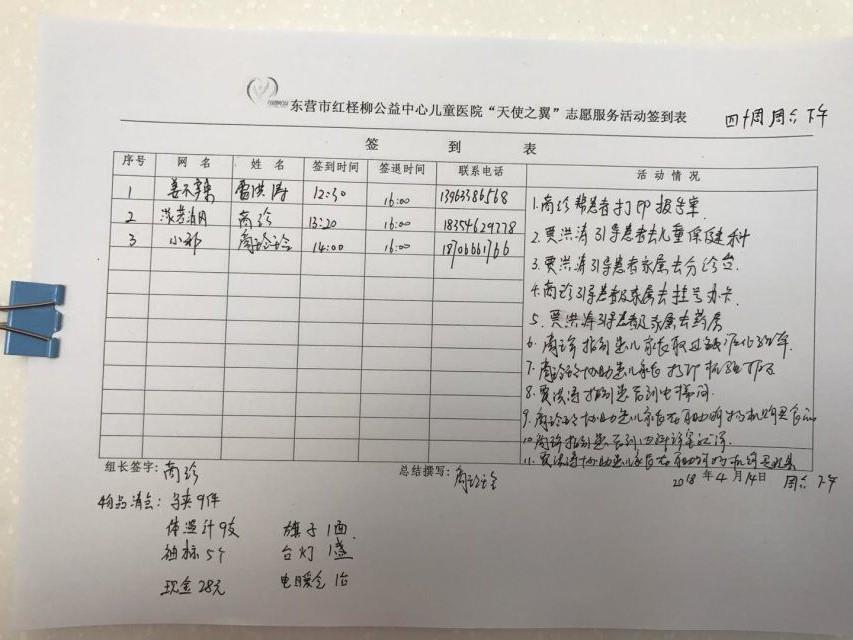 东营市红柽柳公益中心儿童医院“天使之翼”志愿服务活动签到表 四十周 周六 下午
签 到 表
序号 网 名 姓 名 签到时间 签退时间 联系电话 活 动 情 况
1 姜不辣 贾洪涛 12:30 16:00 13963386568
2 商珍 13:20 16:00 18354629778
3 小郗 16:00 14:00 18706661766
1.商珍帮患者打印报告单.
2.贾洪涛引导患者去儿童保健科
3.贾洪涛引导患者家属去分诊台.
4.商珍引导患者及家属去挂号办卡.
5.贾洪涛引导患者及家属去药房
6.商珍指引患儿家长取过敏
7.协助患儿家长打印
8.贾洪涛指引患者到电梯间.
9.协助患儿家长在自助
10.商珍指引患者到四
11.贾洪涛协助患儿家长在自助
组长签字:商珍 总结撰写:
2018年4月14日 周六 下午
物品清点: 9件
体温计9支 旗子1面.
袖标5个 台灯1盏
现金28元 电暖气1台